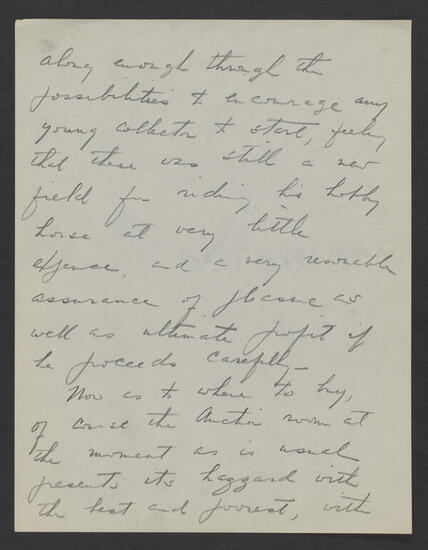 along enough through the
possibilities to encourage any
young collector to start, feeling
that there was still a new
field for riding his hobby
horse at very little
expense, and a very resonable
assurance of pleasure as
well as ultimate profit if
he proceeds carefully—
Now as to where to buy,
of course the Auction room at
the moment as is usual
presents its haggard with
the best and poorest, with